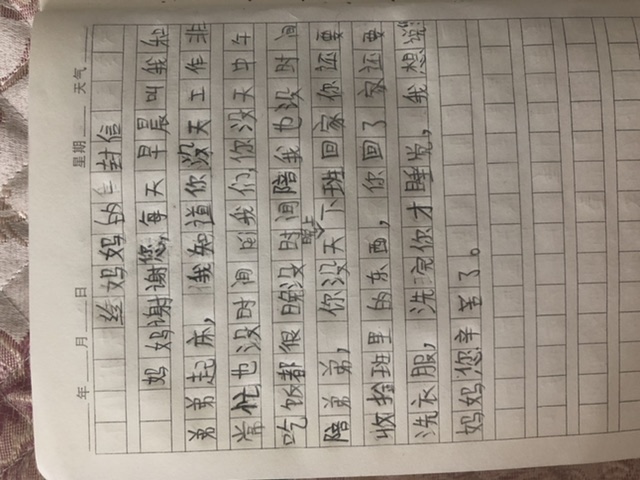 年 月 日 星期 天气
给妈妈的一封信
妈妈谢谢您,每天早晨叫我和
弟弟起床,我知道你没天工作非
常忙也没时间 我们,你没天中午
吃饭都很晚没时间陪我也没时间
陪弟弟,你没天晚上下班回家你还要
收拾班里的东西,你回了家还要
洗衣服,洗完你才睡觉,我想说:
妈妈您辛苦了。